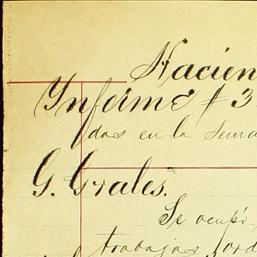 Hacien
Informe # 3
das en la Sema
G. Grales.
Se ocupó,
trabajos ord